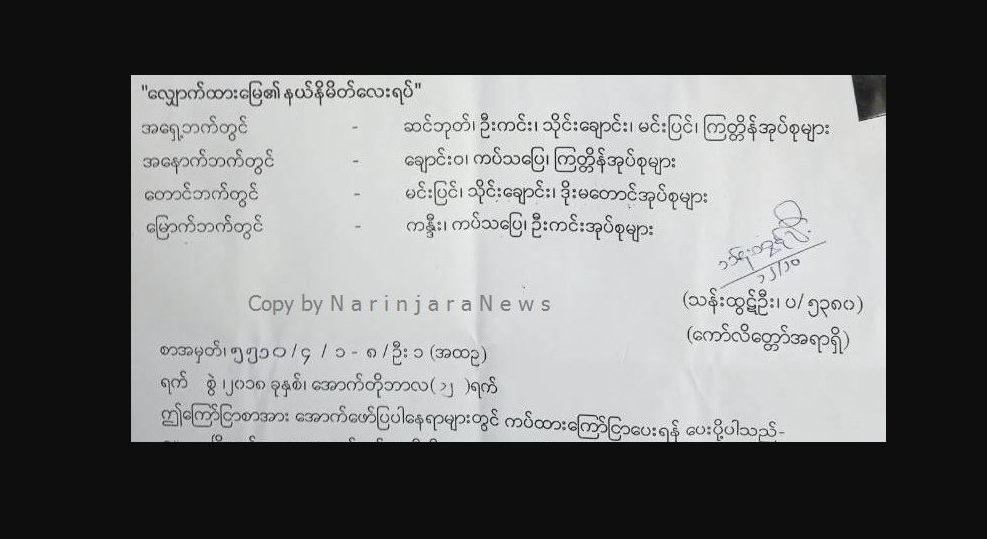 "လျှောက်ထားမြေ၏ နယ်နိမိတ်လေးရပ်"
အရှေ့ဘက်တွင် - ဆင်ဘုတ်၊ ဦးကင်း၊ သိုင်းချောင်း၊ မင်းပြင်၊ ကြတ္တိန်အုပ်စုများ
အနောက်ဘက်တွင် - ချောင်းဝ၊ ကပ်သပြေ၊ ကြတ္တိန်အုပ်စုများ
တောင်ဘက်တွင် - မင်းပြင်၊ သိုင်းချောင်း၊ ဒိုးမတောင်အုပ်စုများ
မြောက်ဘက်တွင် - ကန္ဒီး၊ ကပ်သပြေ၊ ဦးကင်းအုပ်စုများ
၁၂/၁၀
Copy by Narinjara News
(သန်းထွဋ်ဦး၊ ပ/၅၃၈၀)
(ကော်လိတ္တော်အရာရှိ)
စာအမှတ်၊ ၅၅၁၀ / ၄ / ၁ - ၈ / ဦး ၁ (အထဥ)
ရက် စွဲ ၊၂၀၁၈ ခုနှစ်၊ အောက်တိုဘာလ( ၁၂ )ရက်
ဤကြော်ငြာစာအား အောက်ဖော်ပြပါနေရာများတွင် ကပ်ထားကြော်ငြာပေးရန် ပေးပို့ပါသည်-